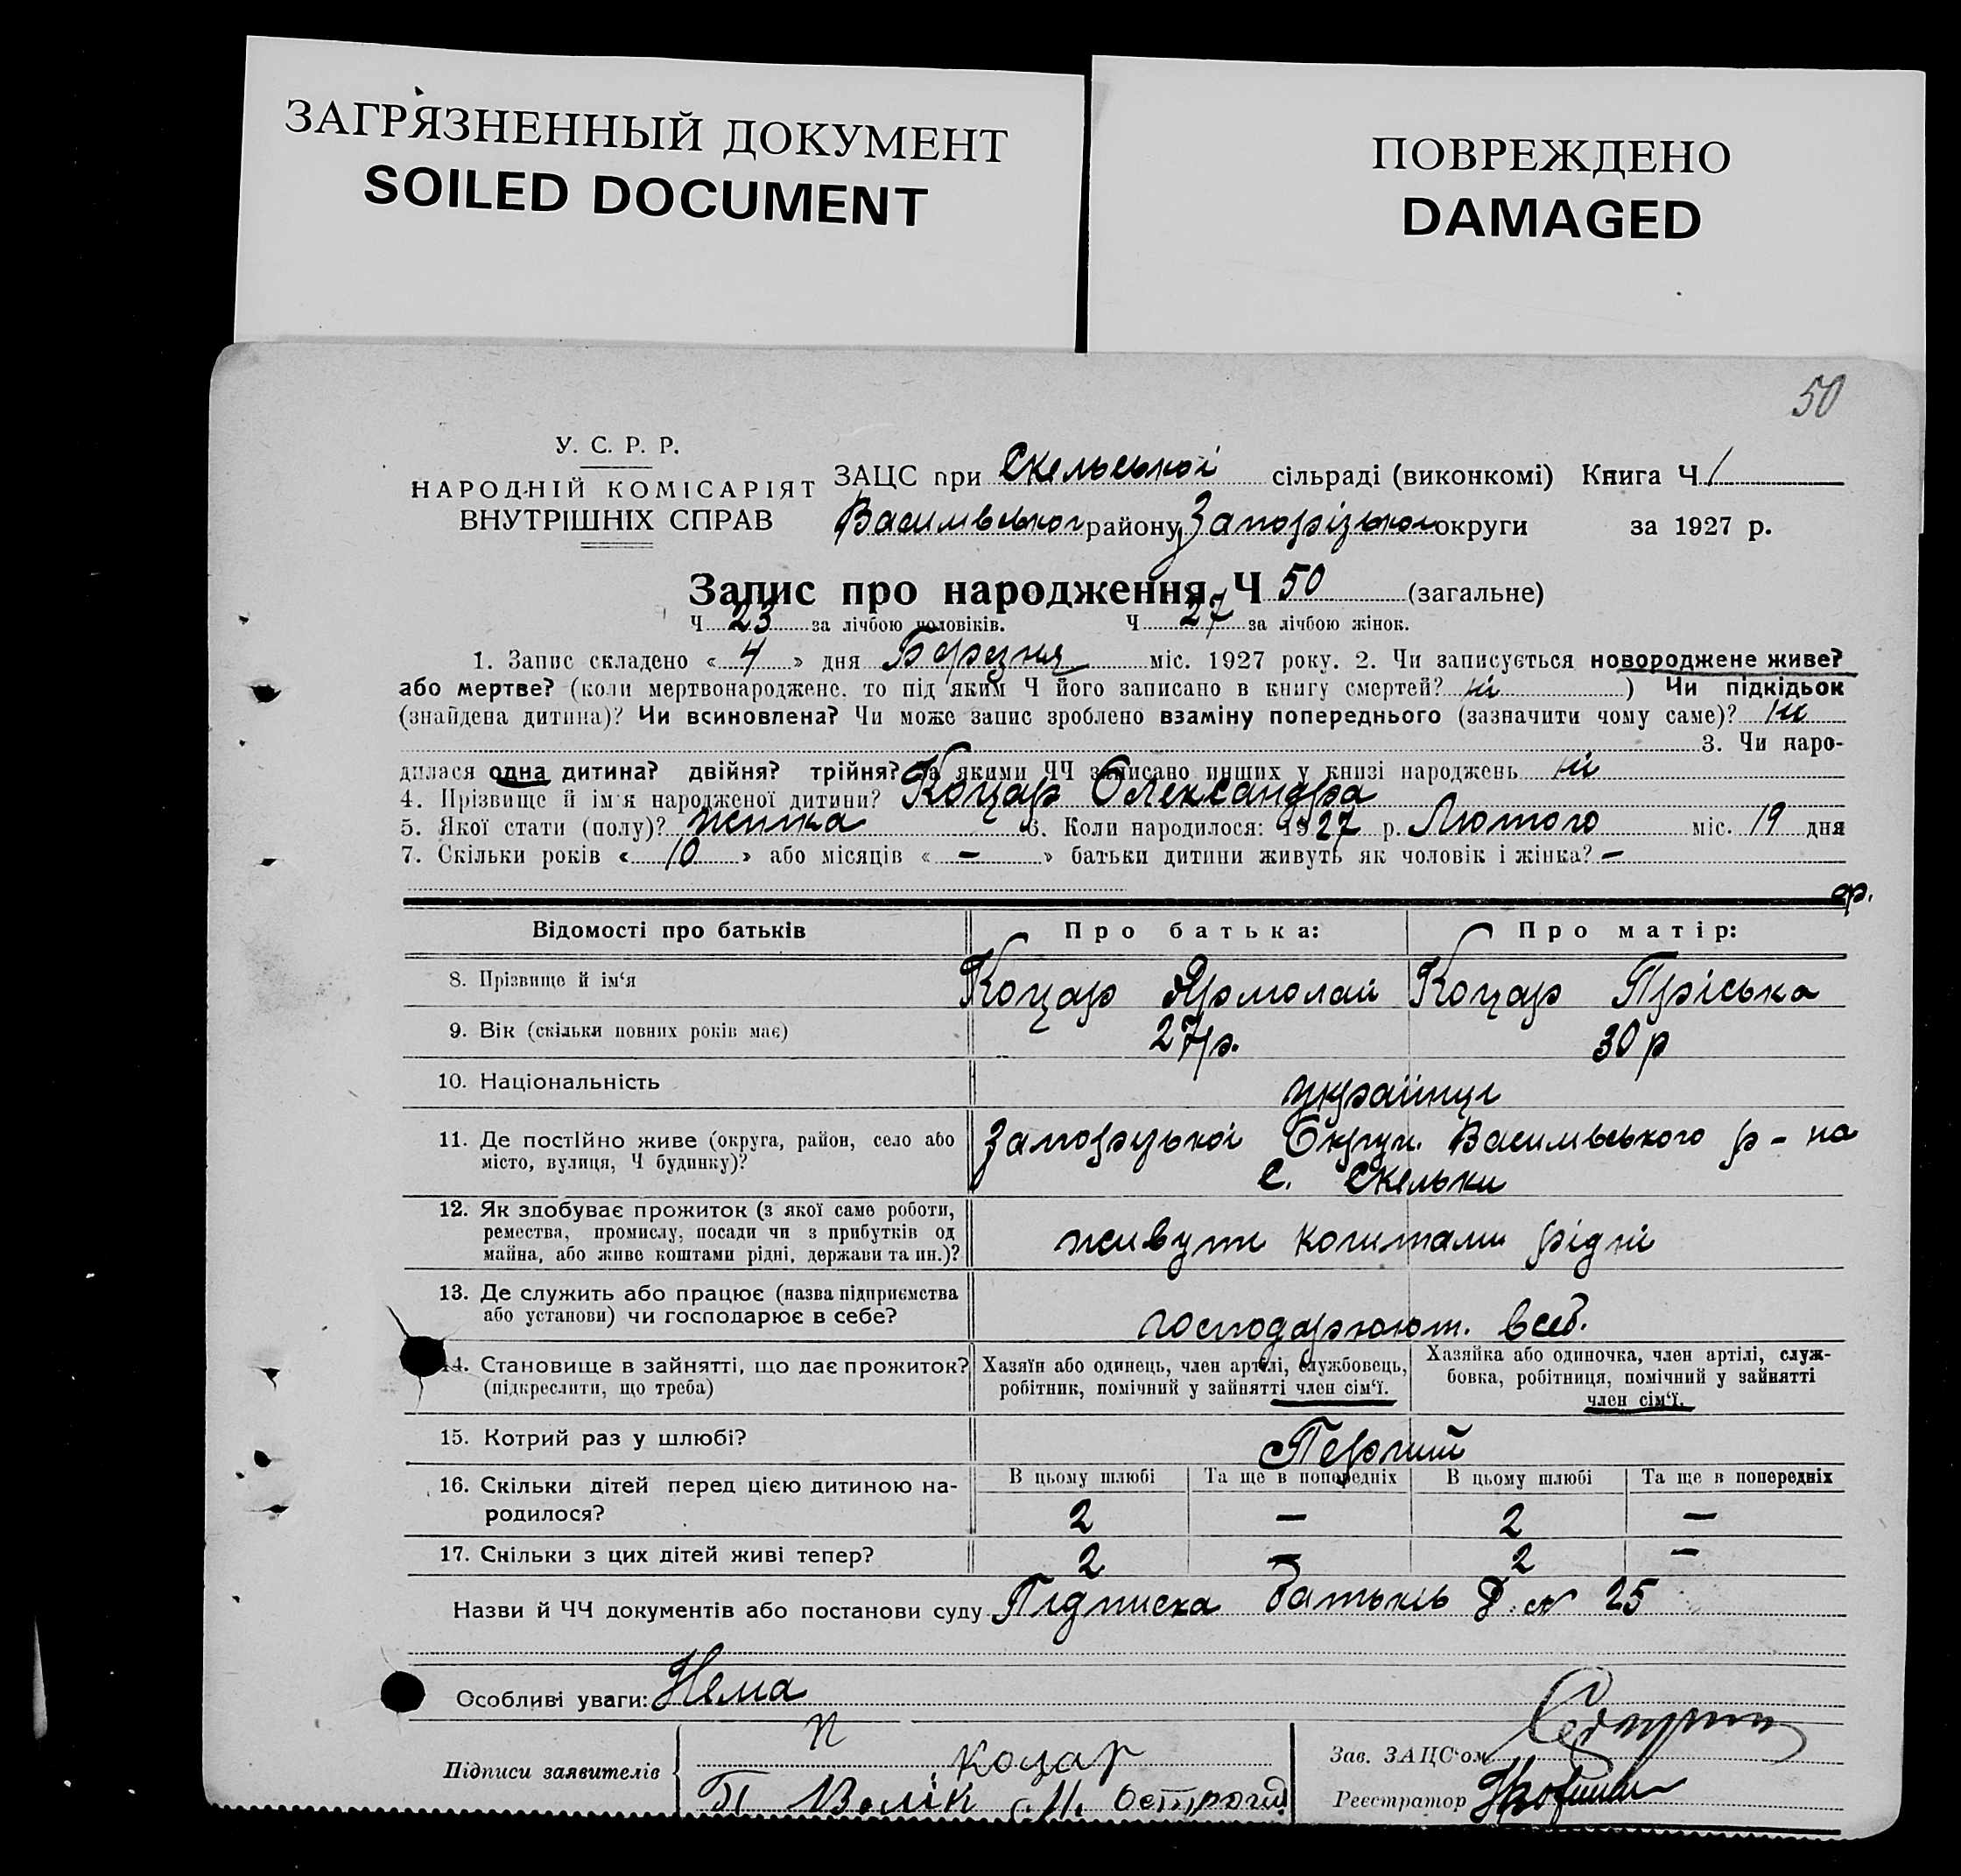 ЗАГРЯЗНЕННЫЙ ДОКУМЕНТ
SOILED DOCUMENT
ПОВРЕЖДЕНО
DAMAGED
50
У. С. Р. Р.
НАРОДНІЙ КОМІСАРІЯТ
ВНУТРІШНІХ СПРАВ
ЗАЦС при Скельської сільраді (виконкомі) Книга Ч 1
Василівського району Запорізької округи за 1927 р.
Запис про народження Ч 50 (загальне)
Ч 23 за лічбою чоловіків. Ч 27 за лічбою жінок.
1. Запис складено « 4 » дня Березня міс. 1927 року. 2. Чи записується новороджене живе?
або мертве? (коли мертвонароджене. то під яким Ч його записано в книгу смертей? ні ) Чи підкідьок
(знайдена дитина)? Чи всиновлена? Чи може запис зроблено взаміну попереднього (зазначити чому саме)? ні
3. Чи наро-
дилася одна дитина? двійня? трійня? За якими ЧЧ записано инших у книзі народжень ні
4. Прізвище й ім'я народженої дитини? Коцар Олександра
5. Якої стати (полу)? жінка 6. Коли народилося: 1927 р. Лютого міс. 19 дня
7. Скільки років « 10 » або місяців « — » батьки дитини живуть як чоловік і жінка? —
Відомості про батьків Про батька: Про матір:
8. Прізвище й ім'я Коцар Ярмолай Коцар Пріська
9. Вік (скільки повних років має) 27 р. 30 р
10. Національність українці
11. Де постійно живе (округа, район, село або Запорізької Округи. Василівського р-на
місто, вулиця, Ч будинку)? с. Скельки
12. Як здобуває прожиток (з якої саме роботи,
ремества, промислу, посади чи з прибутків од
майна, або живе коштами рідні, держави та ин.)? живуть коштами рідні
13. Де служить або працює (назва підприємства
або установи) чи господарює в себе? господарюют. всеб.
14. Становище в зайнятті, що дає прожиток? Хазяїн або одинець, член артілі, службовець, Хазяйка або одиночка, член артілі, служ-
(підкреслити, що треба) робітник, помічний у зайнятті член сім'ї. бовка, робітниця, помічний у зайнятті
член сім'ї.
15. Котрий раз у шлюбі? Перший
16. Скільки дітей перед цією дитиною на- В цьому шлюбі Та ще в попередніх В цьому шлюбі Та ще в попередніх
родилося? 2 — 2 —
17. Скільки з цих дітей живі тепер? 2 — 2 —
Назви й ЧЧ документів або постанови суду Підписка батьків 25
Особливі уваги: Нема
Підписи заявителів коцар
Зав. ЗАЦС'ом
Реєстратор